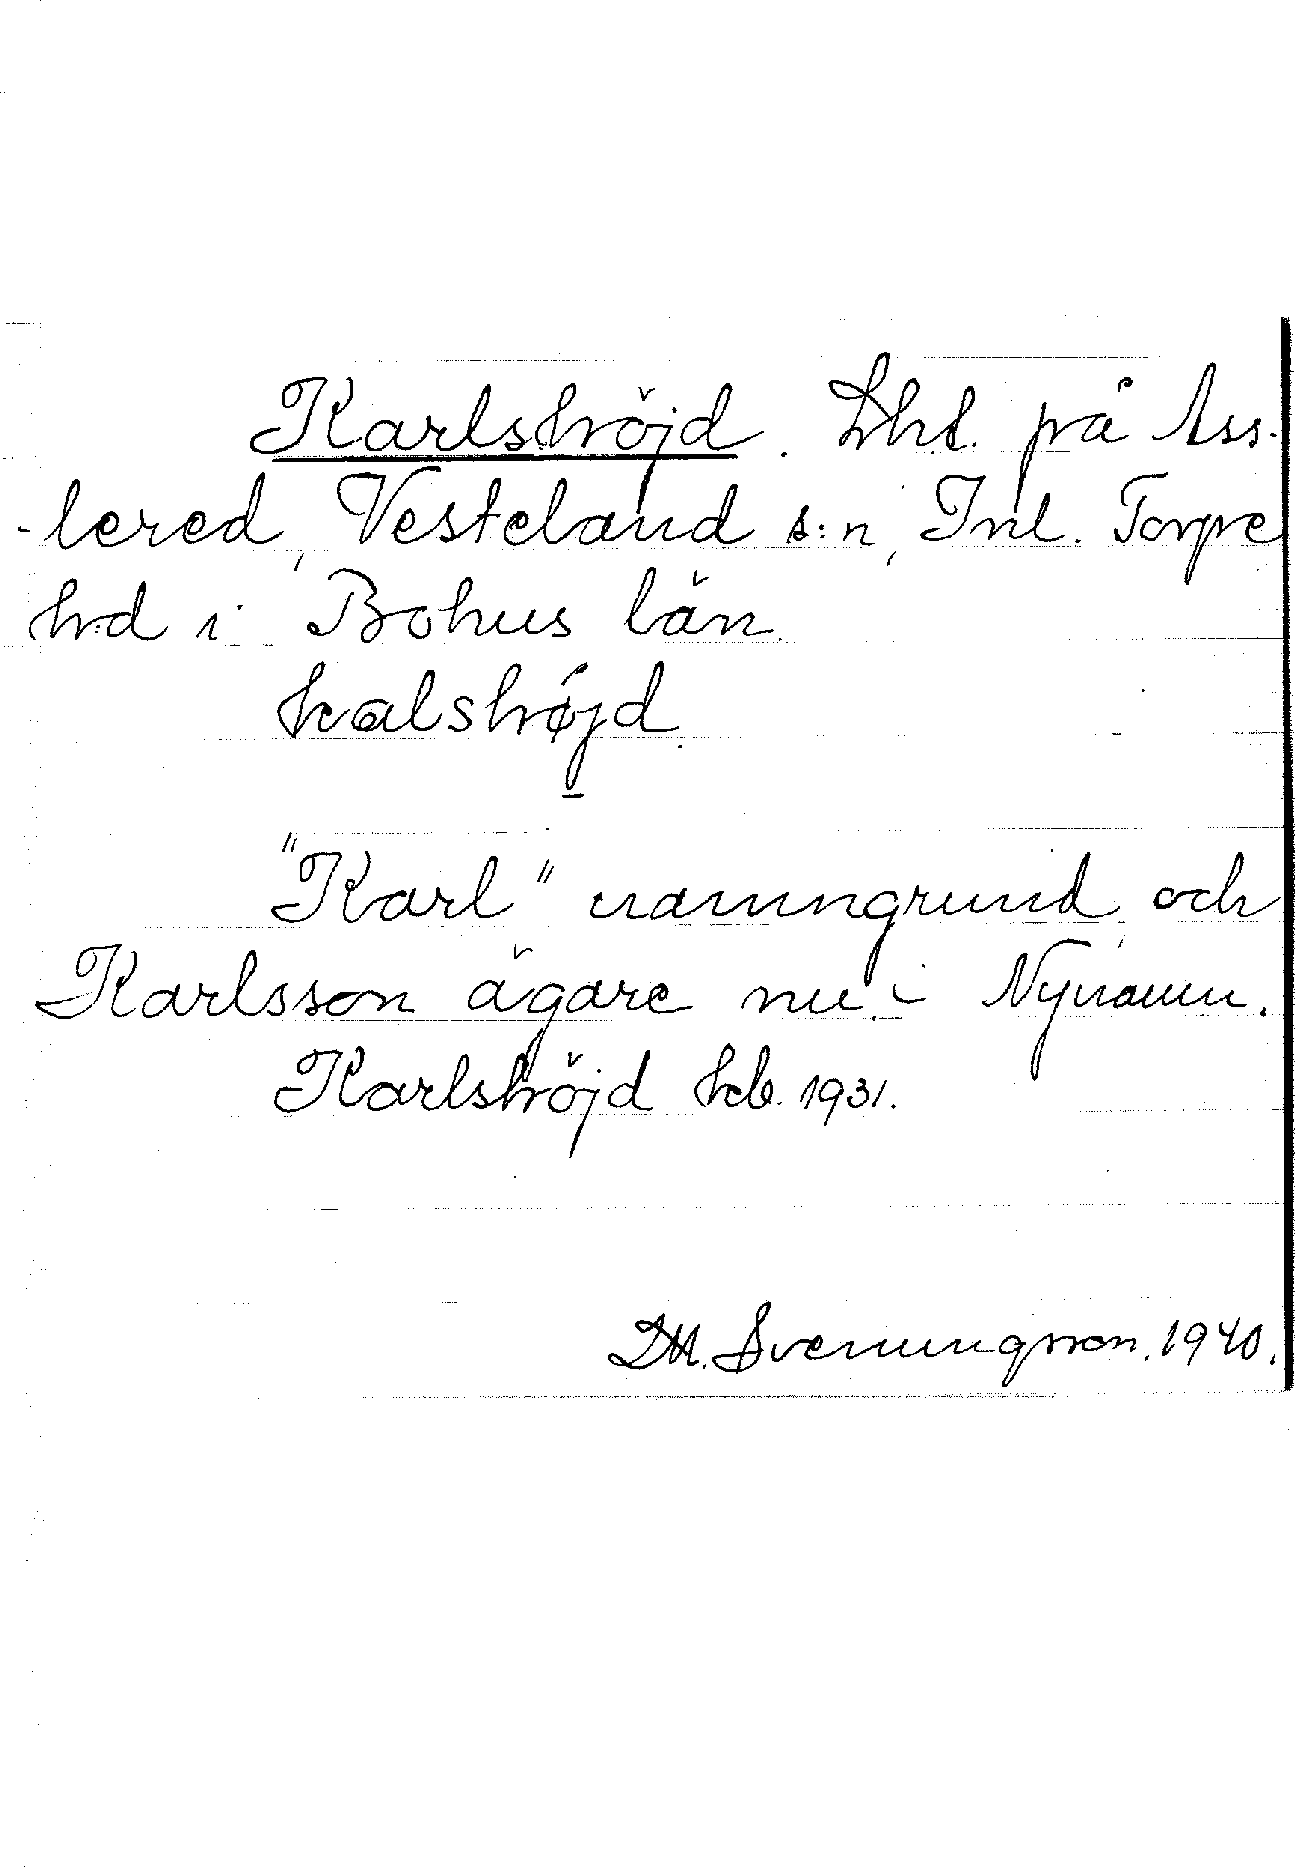 Karlshöjd. Lht. på Ass-
-lered, Vesteland s:n, Inl. Torpe
h:d i Bohus län.
kalshøjd.
"Karl" namngrund, och
Karlsson ägare nu. – Nynamn.
Karlshöjd kb. 1931.
D.M. Svenungsson. 1940.